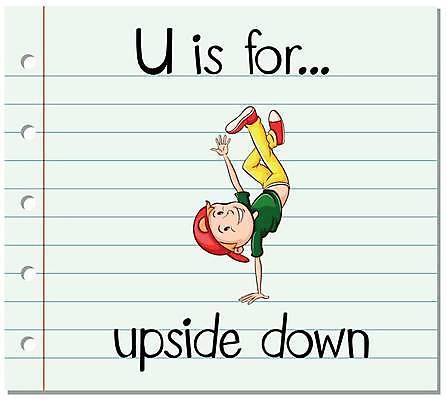 U is for...
upside down